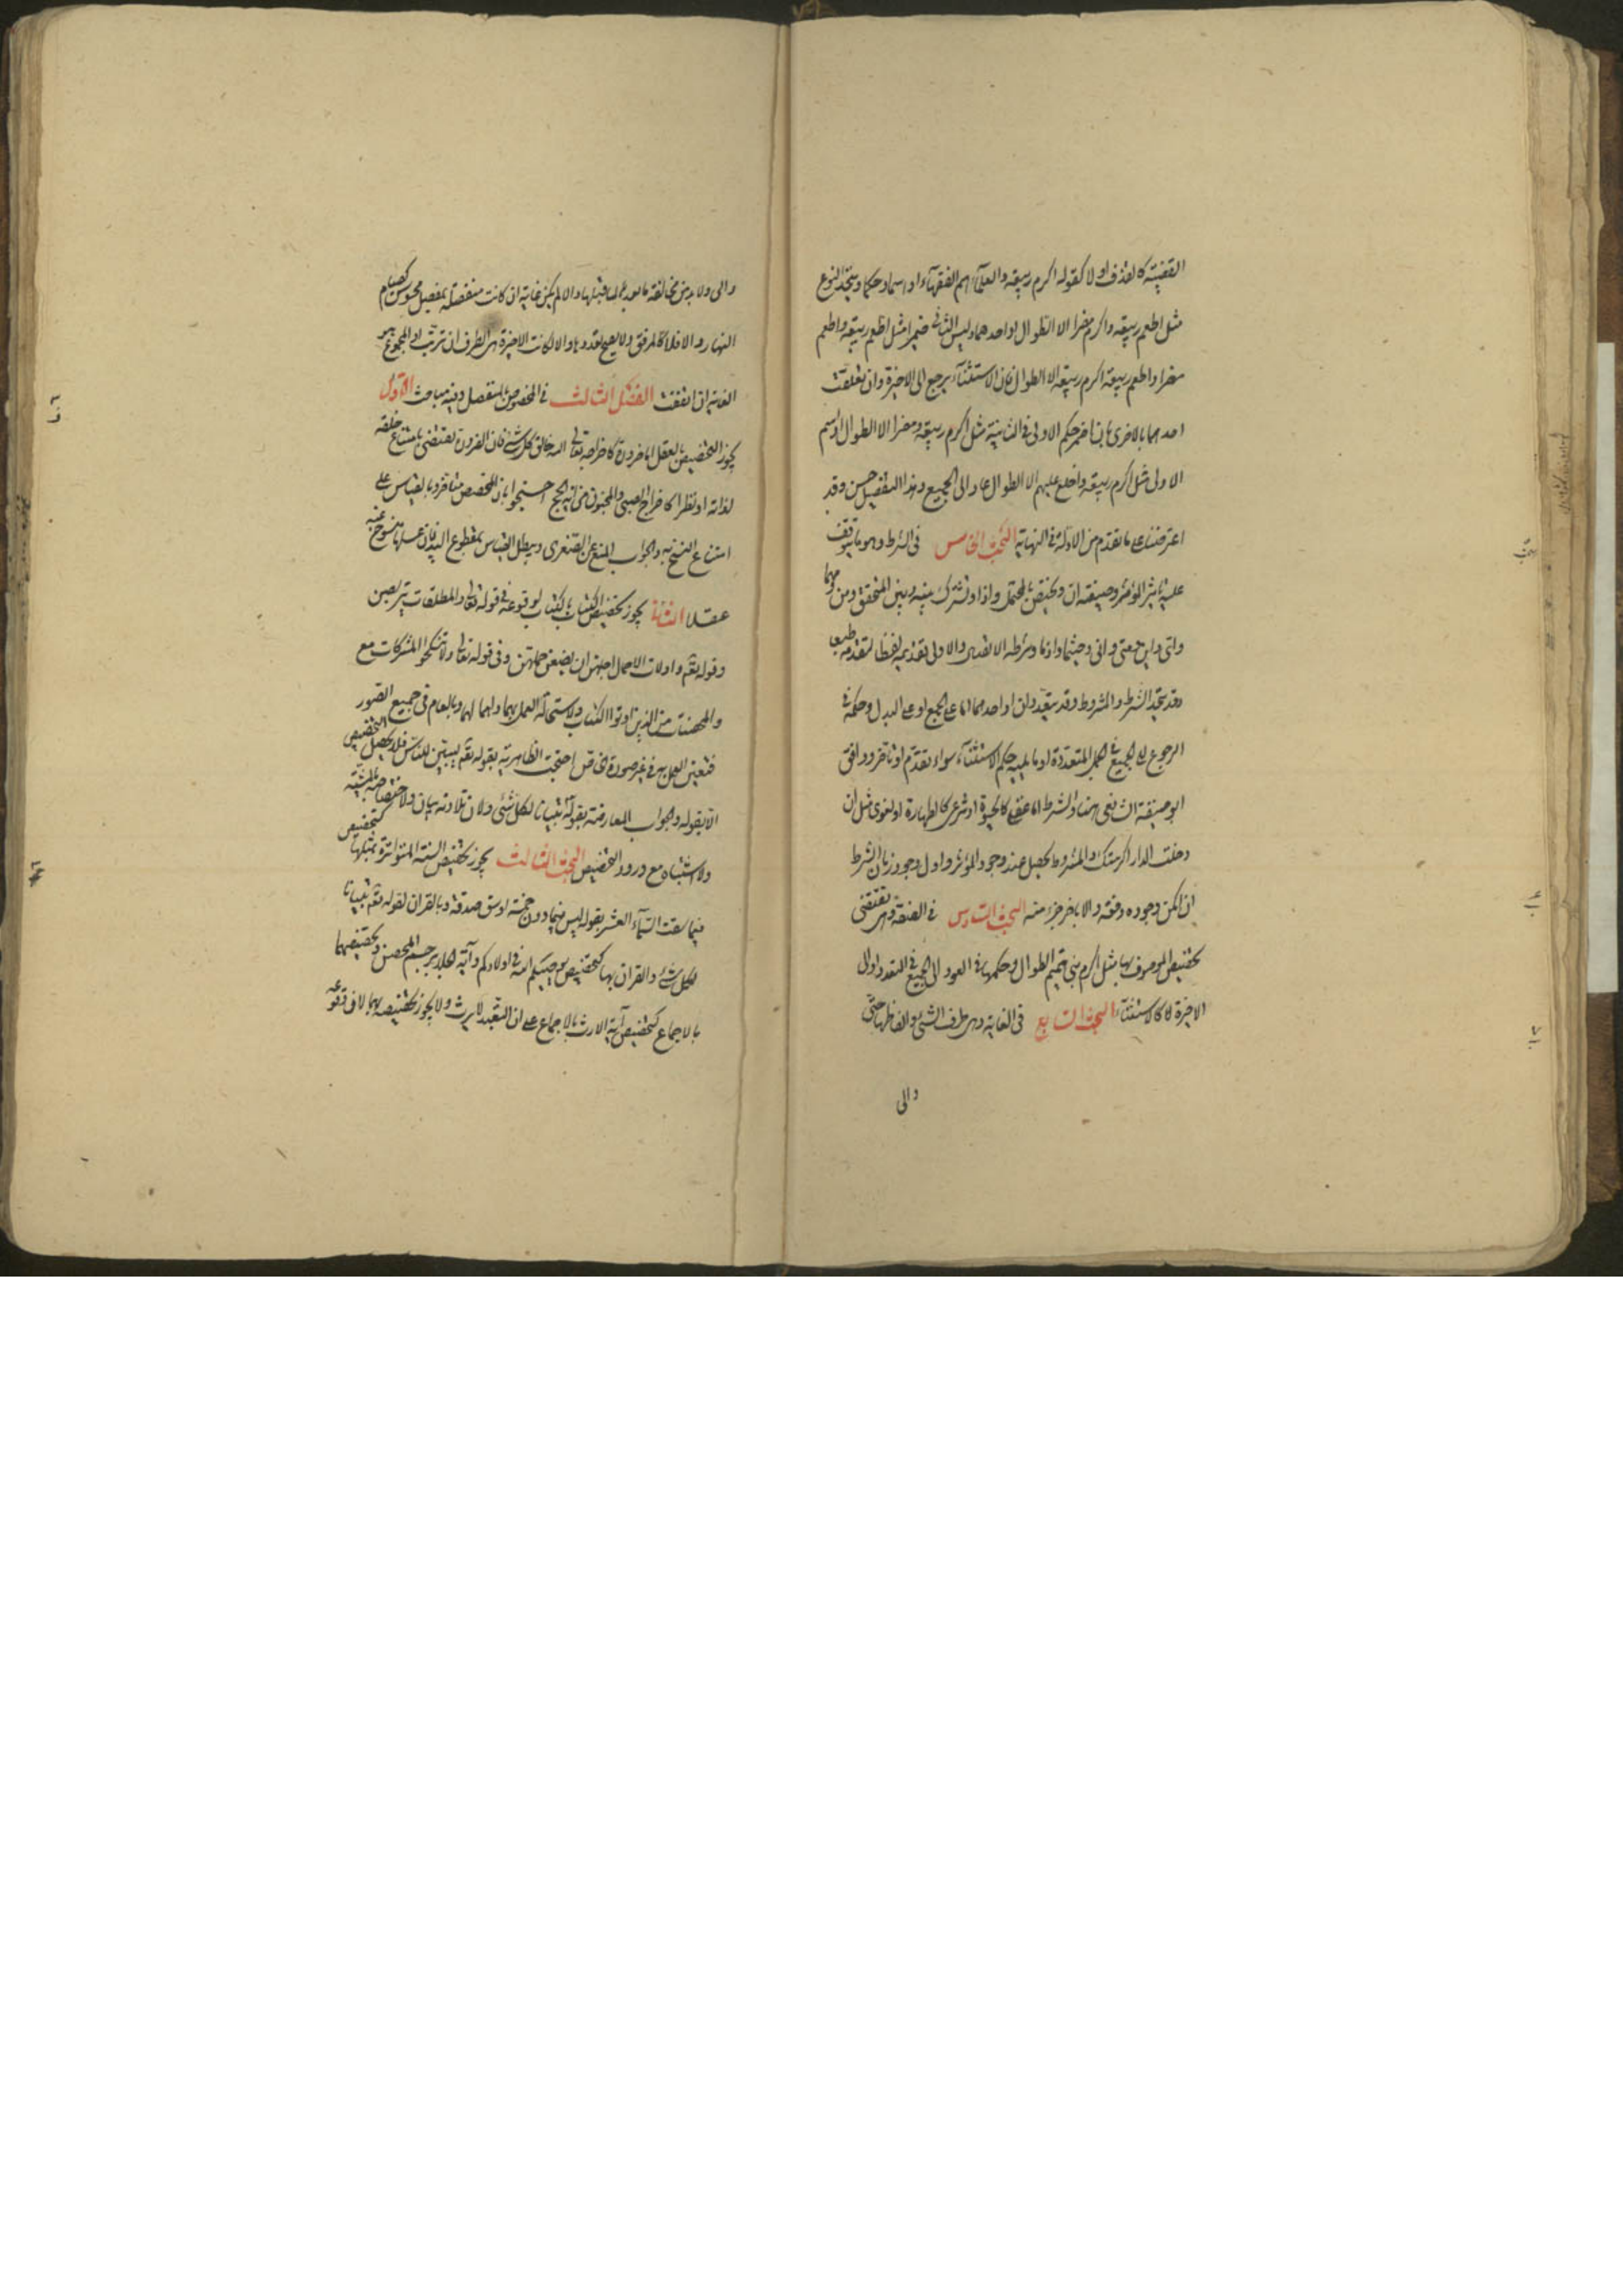 القضية كالقذف او لا كقوله اكرم ربيعة والعلماء هم الفقهاء او اسما وحكما ويتحد النوع
مثل اطعم ربيعة واكرم مضر الا الطوال او احدهما وليس الثاني ضميرا مثل اطعم ربيعة واطعم
مضر او اطعم ربيعة اكرم ربيعة الا الطوال فان الاستثناء يرجع الى الاخيرة وان تعلقت
احدهما بالاخرى بان اضمر حكم الاولى في الثانية مثل اكرم ربيعة ومضر الا الطوال او اسم
الاولى مثل اكرم ربيعة واخلع عليهم الا الطوال عاد الى الجميع وهذا التفصيل حسن وقد
اعترضنا على ما تقدم من الادلة في النهاية البحث الخامس في الشرط وهو ما يتوقف
عليه تاثير المؤثر وصيغته ان ويختص بالمحتمل واذا وتشترك بينه وبين المتحقق ومن ومهما
واى واين ومتى وانى وحيثما واذما وشرطه الاتصال والاولى تقديمه لفظا لتقدمه طبعا
وقد يتحد الشرط والمشروط وقد يتعددان او احدهما اما على الجمع او على البدل وحكمه في
الرجوع الى الجميع في الجمل المتعددة او ما يليه حكم الاستثناء سواء تقدم او تاخر ووافق
ابو حنيفة الشافعي هنا والشرط اما عقلي كالحيوة او شرعى كالطهارة او لغوى مثل ان
دخلت الدار اكرمتك والمشروط يحصل عند وجود المؤثر واول وجود زمان الشرط
ان امكن وجوده دفعة والا باخر جزء منه البحث السادس في الصفة وهي تقتضى
تخصيص الموصوف بها مثل اكرم بني تميم الطوال وحكمها في العود الى الجميع في التعدد او الى
الاخيرة لا كالاستثناء البحث السابع في الغاية وهي طرف الشئ والفاظها حتى
والى
والى ولا بد من مخالفة ما بعدها لما قبلها والا لم يكن غاية ان كانت منفصلة بمفصل محسوس كصيام
النهار والا فلا كالمرفق ولا يصح تعددها والا لكانت الاخيرة هي الطرف ان ترتب او المجموع هو
الغاية ان اتفقت الفصل الثالث في المخصوص بالمنفصل وفيه مباحث الاول
يجوز التخصيص بالعقل اما ضرورة كاخراجه تعالى الله خالق كل شئ فان الضرورة تقتضى بامتناع خلقه
لذاته او نظرا كاخراج الصبي والمجنون من اية الحج احتجوا بان المخصص متاخر وبالقياس على
امتناع النسخ به والجواب المنع عن الصغرى ويبطل القياس بمقطوع اليد فان غسلها منسوخ عنه
عقلا الثانى يجوز تخصيص الكتاب بالكتاب لوقوعه في قوله تعالى والمطلقات يتربصن
وقوله تعم واولات الاحمال اجلهن ان يضعن حملهن وفي قوله تعالى ولا تنكحوا المشركات مع
والمحصنات من الذين اوتوا الكتاب ولاستحالة العمل بهما واهمالهما وبالعام في جميع الصور
فتعين العمل به في غير صورة الخاص احتجت الظاهرية بقوله تعم ليبين للناس فلا يحصل التخصيص
الا بقوله والجواب المعارضة بقوله تبيانا لكل شئ ولان تلاوته بيان ولاختصاصه بالمشتبه
ولا اشتباه مع ورود التخصيص البحث الثالث يجوز تخصيص السنة المتواترة بمثلها كتخصيص
فيما سقت السماء العشر بقوله ليس فيما دون خمسة اوسق صدقة وبالقران لقوله تعم تبيانا
لكل شئ والقران بها كتخصيص يوصيكم الله في اولادكم واية الجلد برجم المحصن وتخصيصهما
بالاجماع كتخصيص اية الارث بالاجماع على ان العبد لا يرث ولا يجوز تخصيصه بهما لان وقوعه